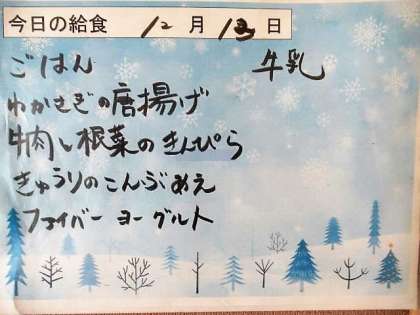 今日の給食 12月13日
ごはん 牛乳
わかさぎの唐揚げ
牛肉と根菜のきんぴら
きゅうりのこんぶあえ
ファイバーヨーグルト